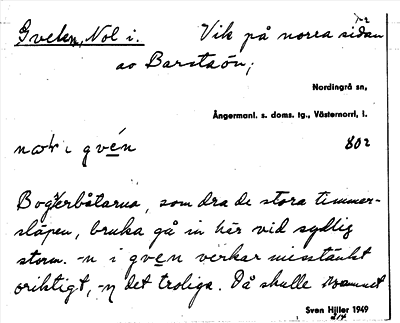 Gveken, Nol i. Vik på norra sidan
av Barstaön;
Nordingrå sn,
Ångermanl. s. doms. tg., Västernorrl. l.
802
i gvén
Bogserbåtarna, som dra de stora timmer-
släpen, bruka gå in här vid sydlig
storm. -n i gven verkar misstänkt
oriktigt, -ŋ det troliga. Då skulle namnet
Sven Hjller 1949